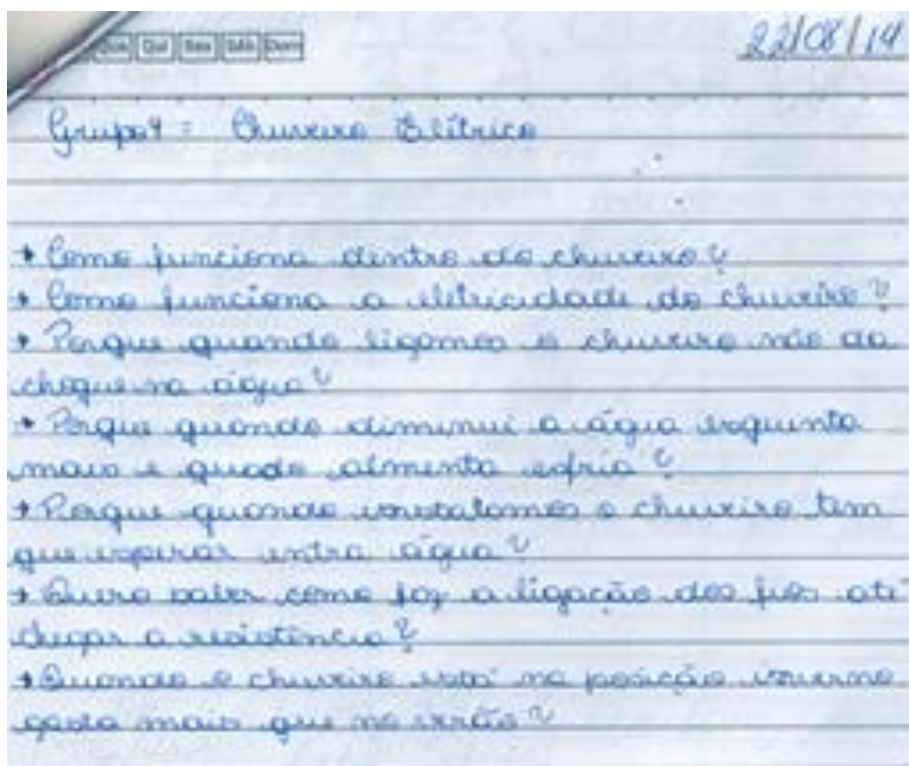 Qua Qui Sex Sáb Dom
22/08/14
Grupo 4 = Chuveiro Elétrico
→ Como funciona dentro do chuveiro?
→ Como funciona a eletricidade do chuveiro?
→ Porque quando ligamos o chuveiro não da
choque na água?
→ Porque quando diminui a água esquenta
mais e quado almenta esfria?
→ Porque quando instalamos o chuveiro tem
que esperar entra água?
→ Quero saber como faz a ligação dos fios até
chegar a resistência?
→ Quando o chuveiro está na posição inverno
gasta mais que no verão?